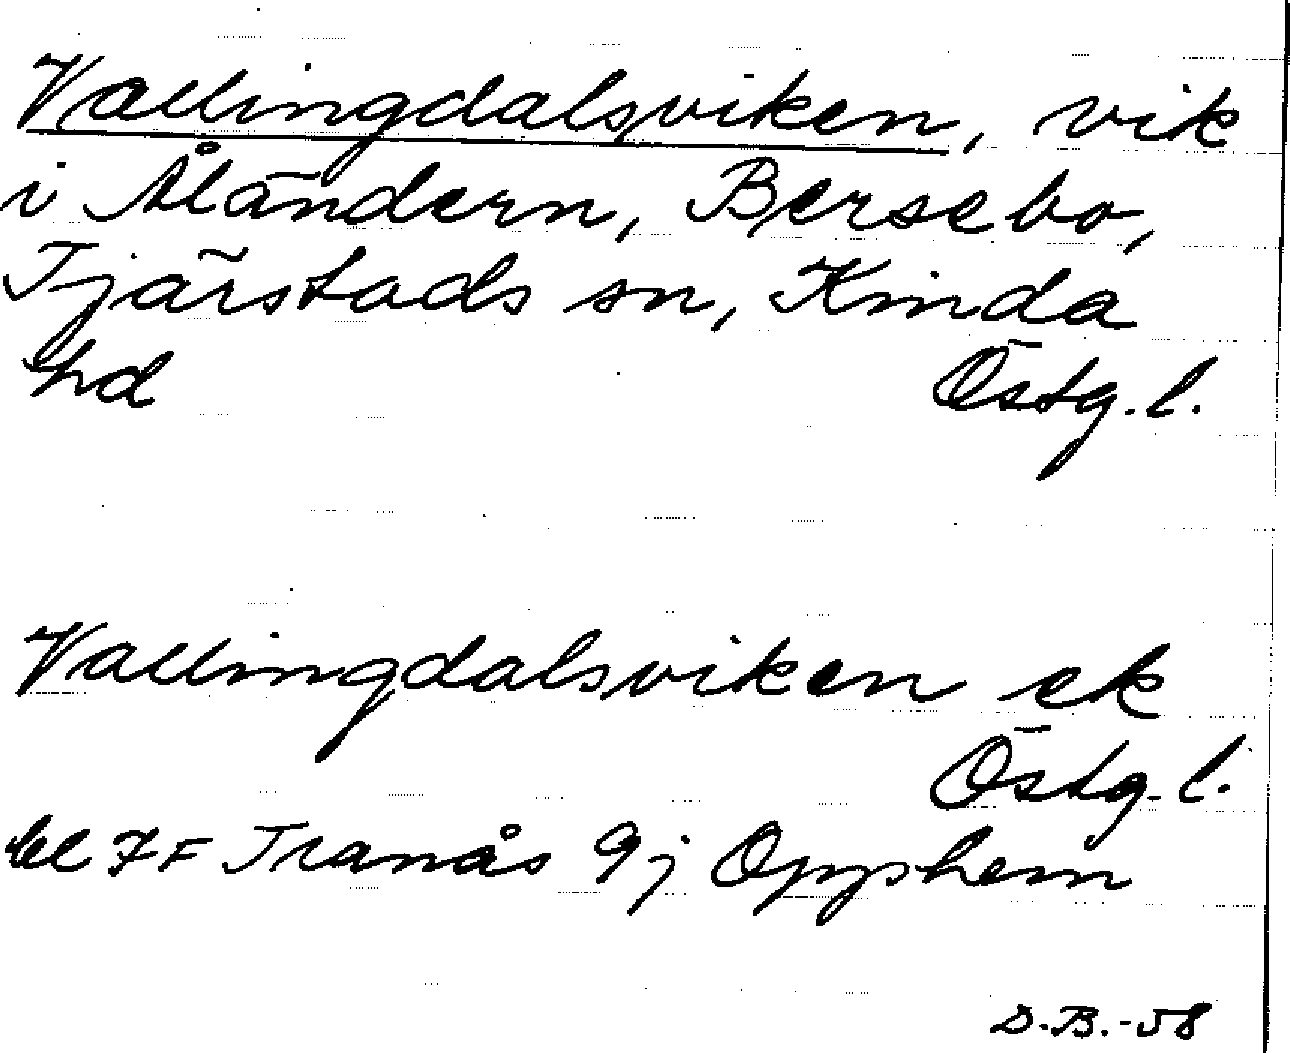 Vallingdalsviken, vik
i Åländern, Bersebo,
Tjärstads sn, Kinda
hd Östg. l.
Vallingdalsviken ek
Östg. l.
bl 7F Tranås 9j Oppshem
D.B.-58